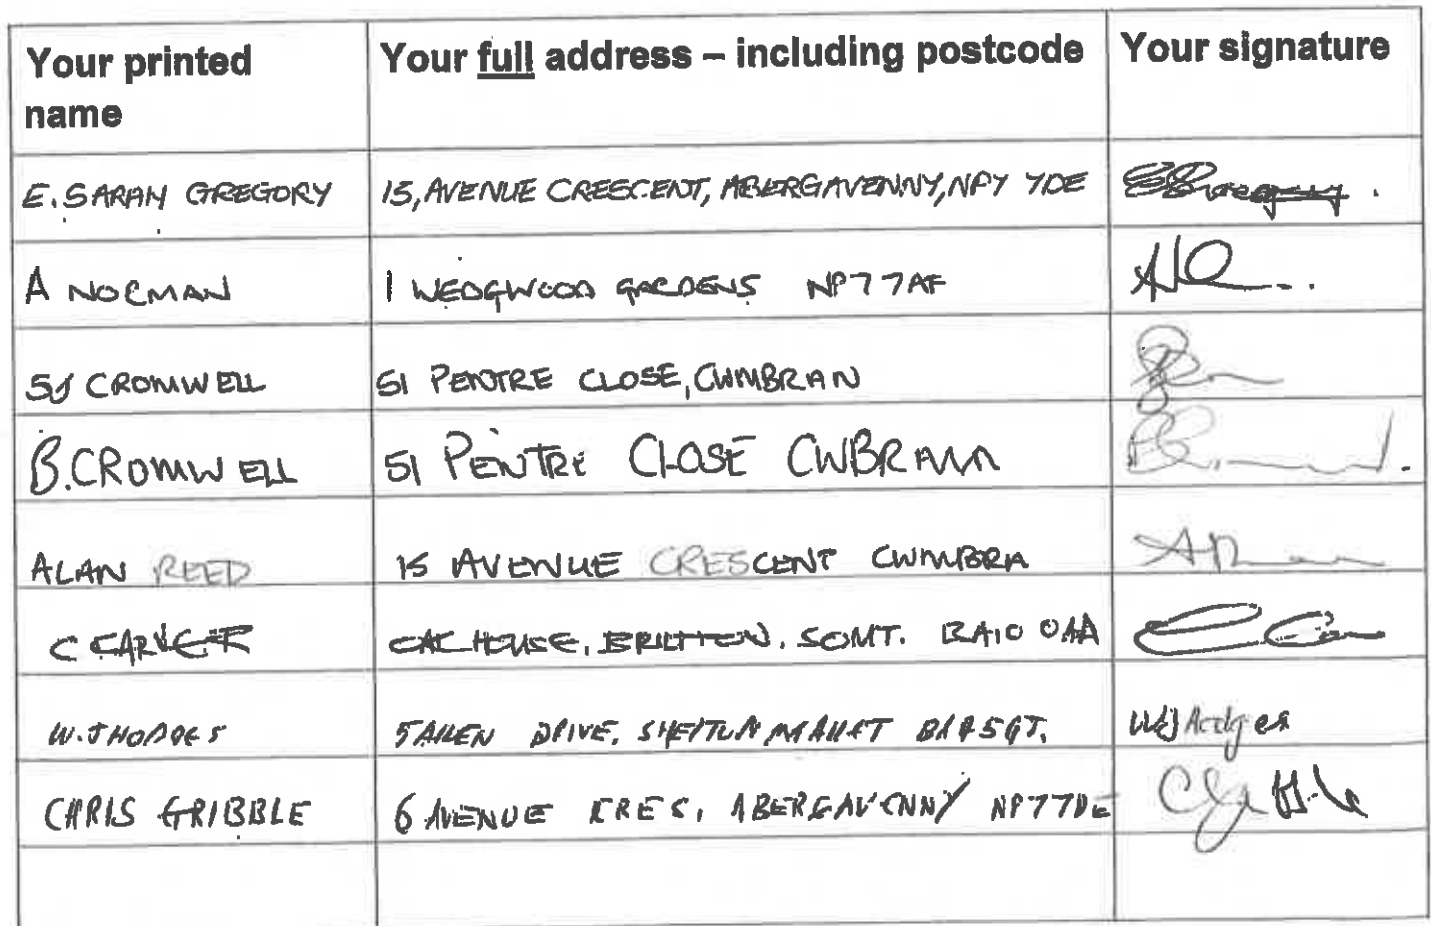 Your printed name
Your full address – including postcode
Your signature
E. SARAH GREGORY 15, AVENUE CRESCENT, ABERGAVENNY, NP7 7DE
A NORMAN 1 WEDGWOOD GARDENS NP7 7AF
SJ CROMWELL 51 PENTRE CLOSE, CWMBRAN
B. CROMWELL 51 PENTRE CLOSE CWBRAN
ALAN REED 15 AVENUE CRESCENT CWMBRA
C SOMT. BA10 0AA
W. J HODGES 5 ALLEN DRIVE, SHEPTON MALLET BA4 5GT. WJ Hodges
CHRIS GRIBBLE 6 AVENUE CRES, ABERGAVENNY NP7 7DE